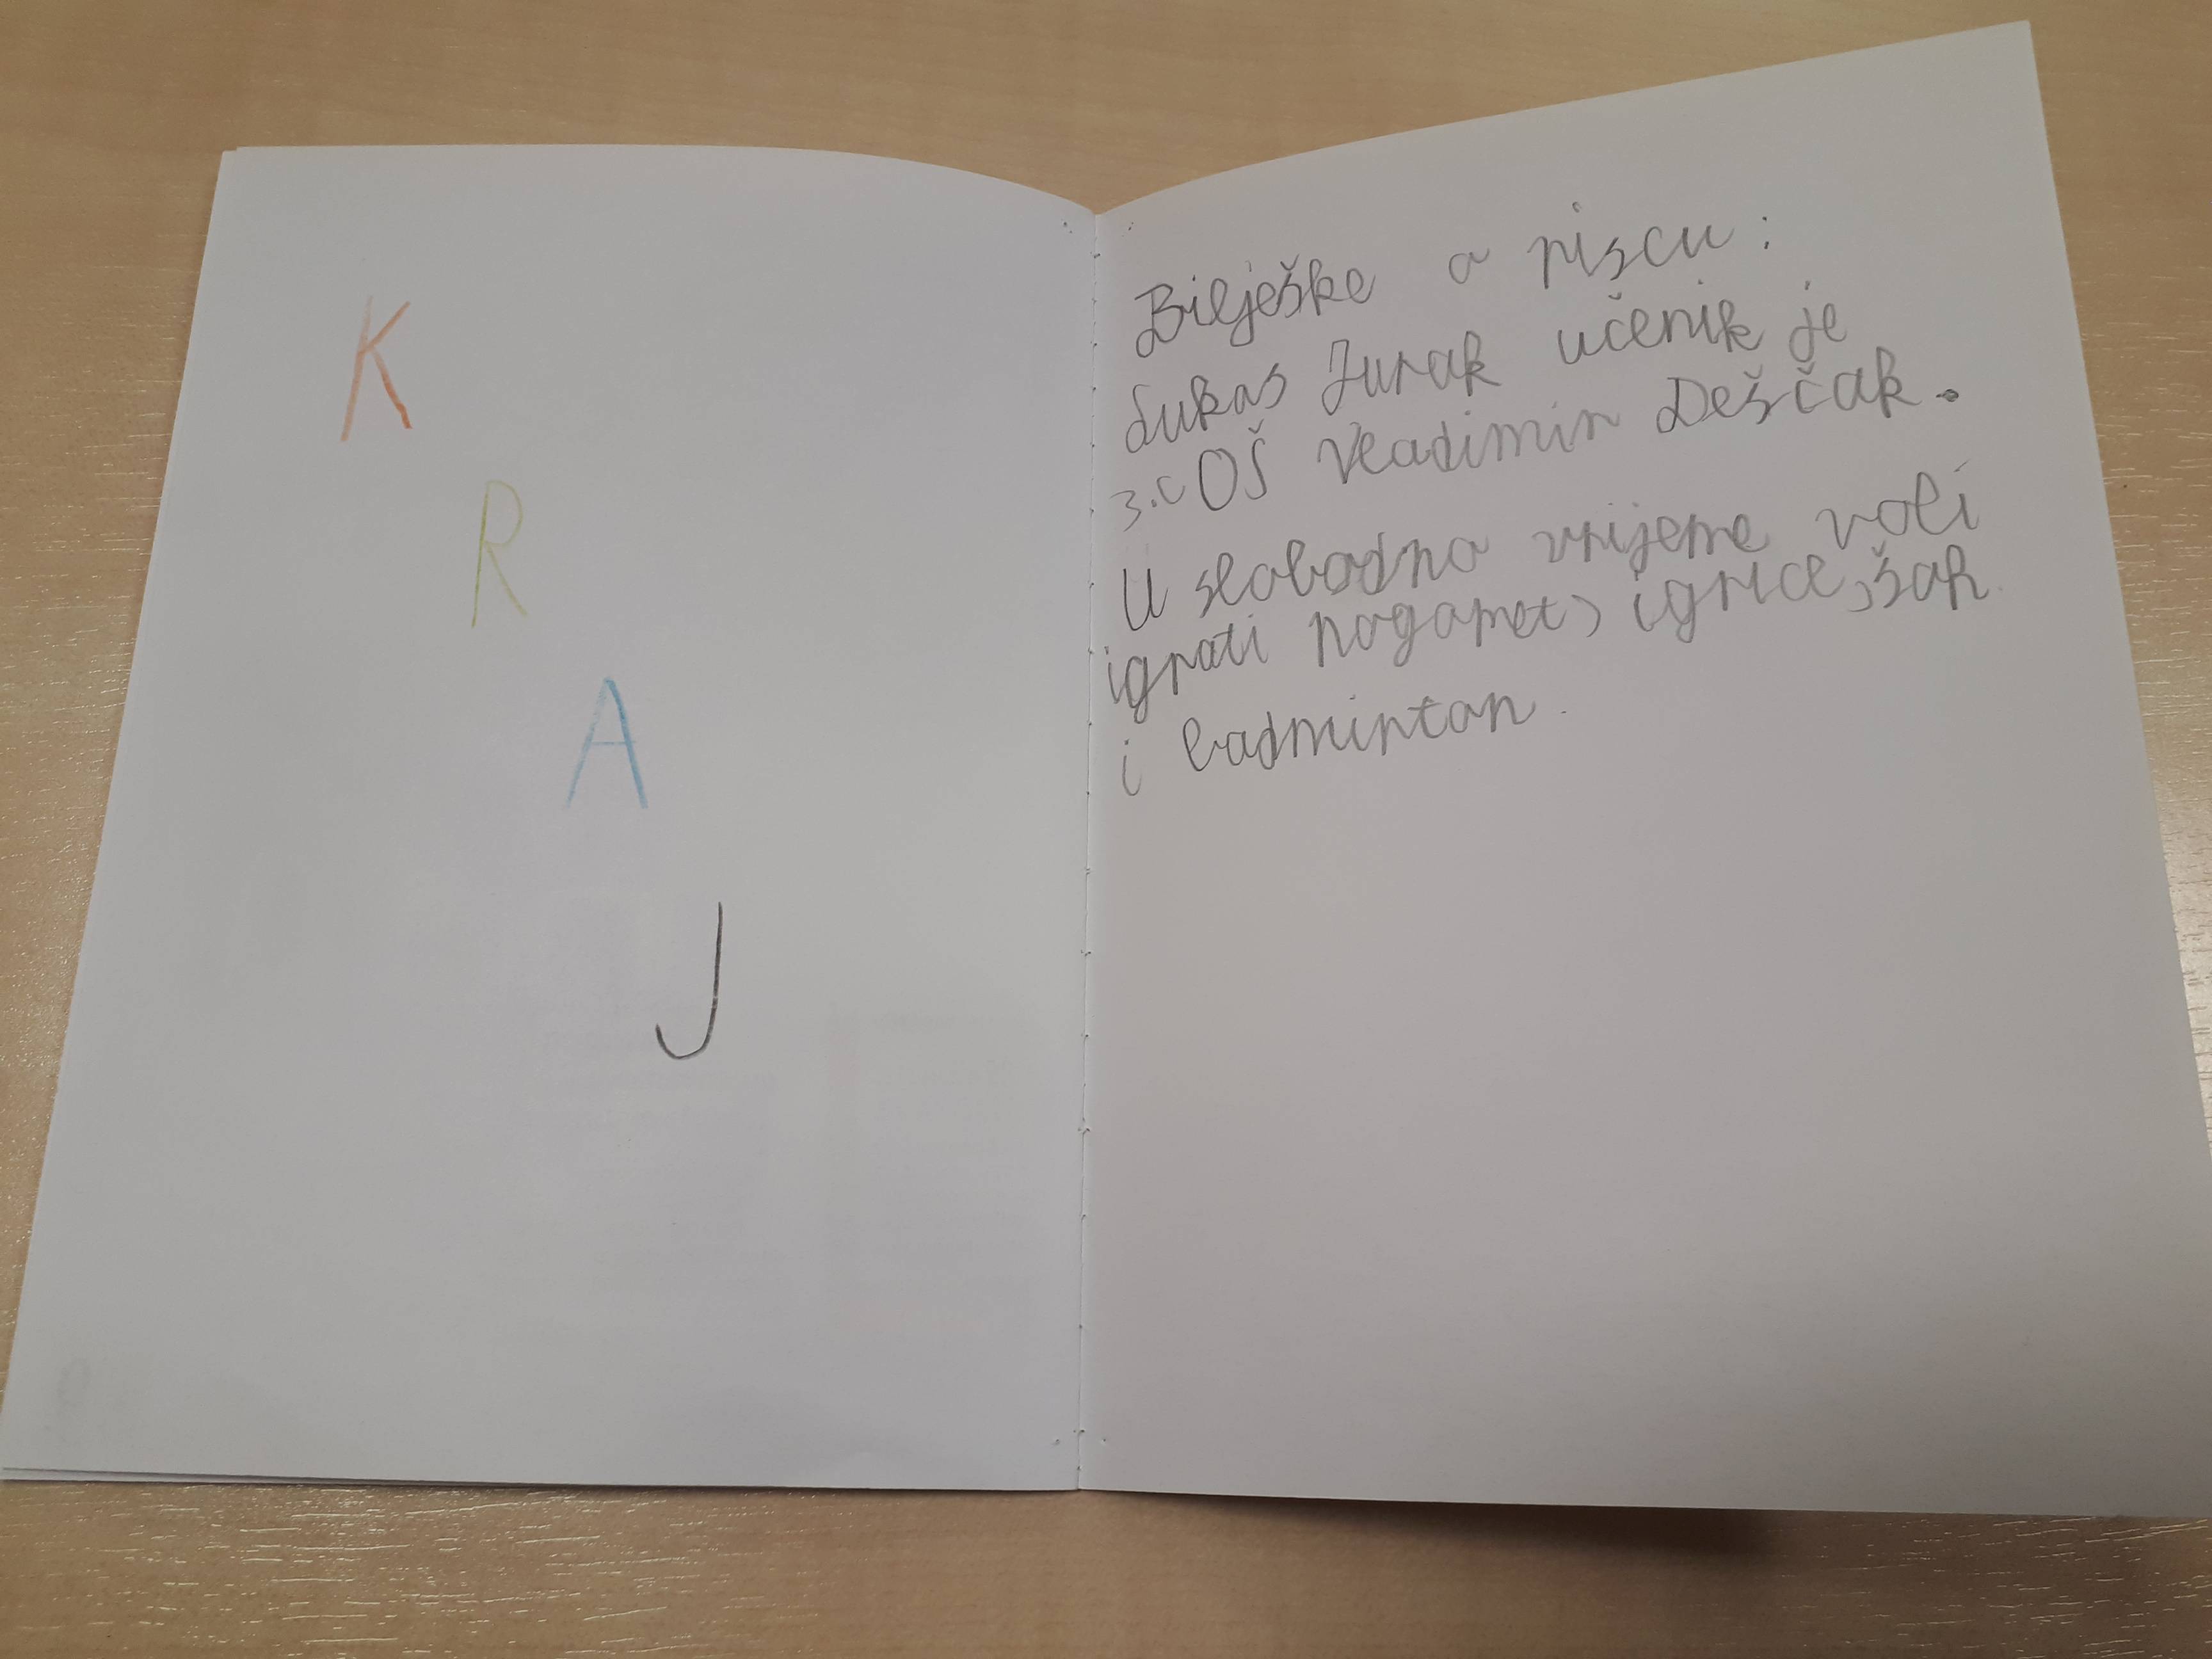 K
R
A
J
Bilješke o piscu:
Lukas Jurak učenik je
3.c OŠ Vladimir Deščak.
U slobodno vrijeme voli
igrati nogomet, igrice, šah
i badminton.